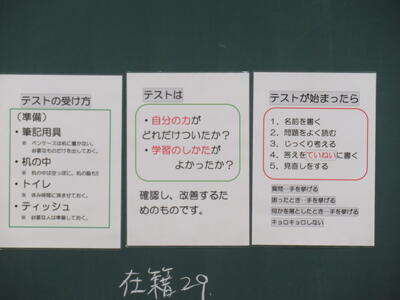 テストの受け方
（準備）
・筆記用具
※ ペンケースは机に置かない。
必要なものだけを出しておく。
・机の中
※ 机の中は空っぽに。机の脇も!!
・トイレ
※ 休み時間に済ませておく。
・ティッシュ
※ 必要な人は準備しておく。
テストは
・自分の力が
どれだけついたか？
・学習のしかたが
よかったか？
確認し、改善するた
めのものです。
テストが始まったら
１、名前を書く
２、問題をよく読む
３、じっくり考える
４、答えをていねいに書く
５、見直しをする
質問…手を挙げる
困ったとき…手を挙げる
何かを落としたとき…手を挙げる
キョロキョロしない
在籍29.